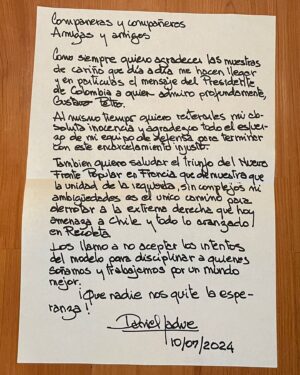 Compañeras y compañeros
Amigas y amigos
Como siempre quiero agradecer las muestras
de cariño que día a día me hacen llegar
y en particular el mensaje del Presidente
de Colombia a quien admiro profundamente,
Gustavo Petro.
Al mismo tiempo quiero reiterarles mi ab-
soluta inocencia y agradezco todo el esfuer-
zo de mi equipo de defensa para terminar
con este encarcelamiento injusto.
También quiero saludar el triunfo del Nuevo
Frente Popular en Francia que demuestra que
la unidad de la izquierda, sin complejos ni
ambigüedades es el único camino para
derrotar a la extrema derecha que hoy
amenaza a Chile y todo lo avanzado
en Recoleta.
Los llamo a no aceptar los intentos
del modelo para disciplinar a quienes
soñamos y trabajamos por un mundo
mejor.
¡Que nadie nos quite la espe-
ranza!
Daniel Jadue
10/07/2024